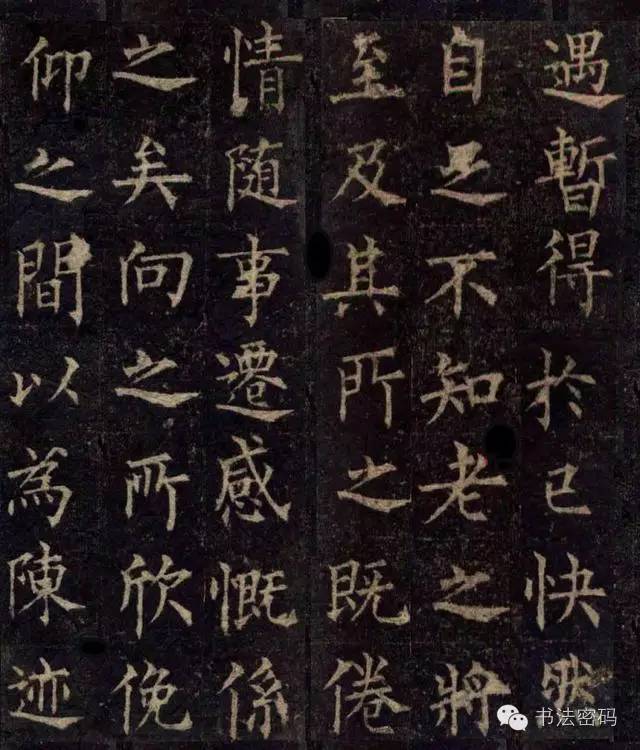 遇暫得於已快然
自足不知老之將
至及其所之既倦
情隨事遷感慨係
之矣向之所欣俛
仰之間以為陳迹
书法密码